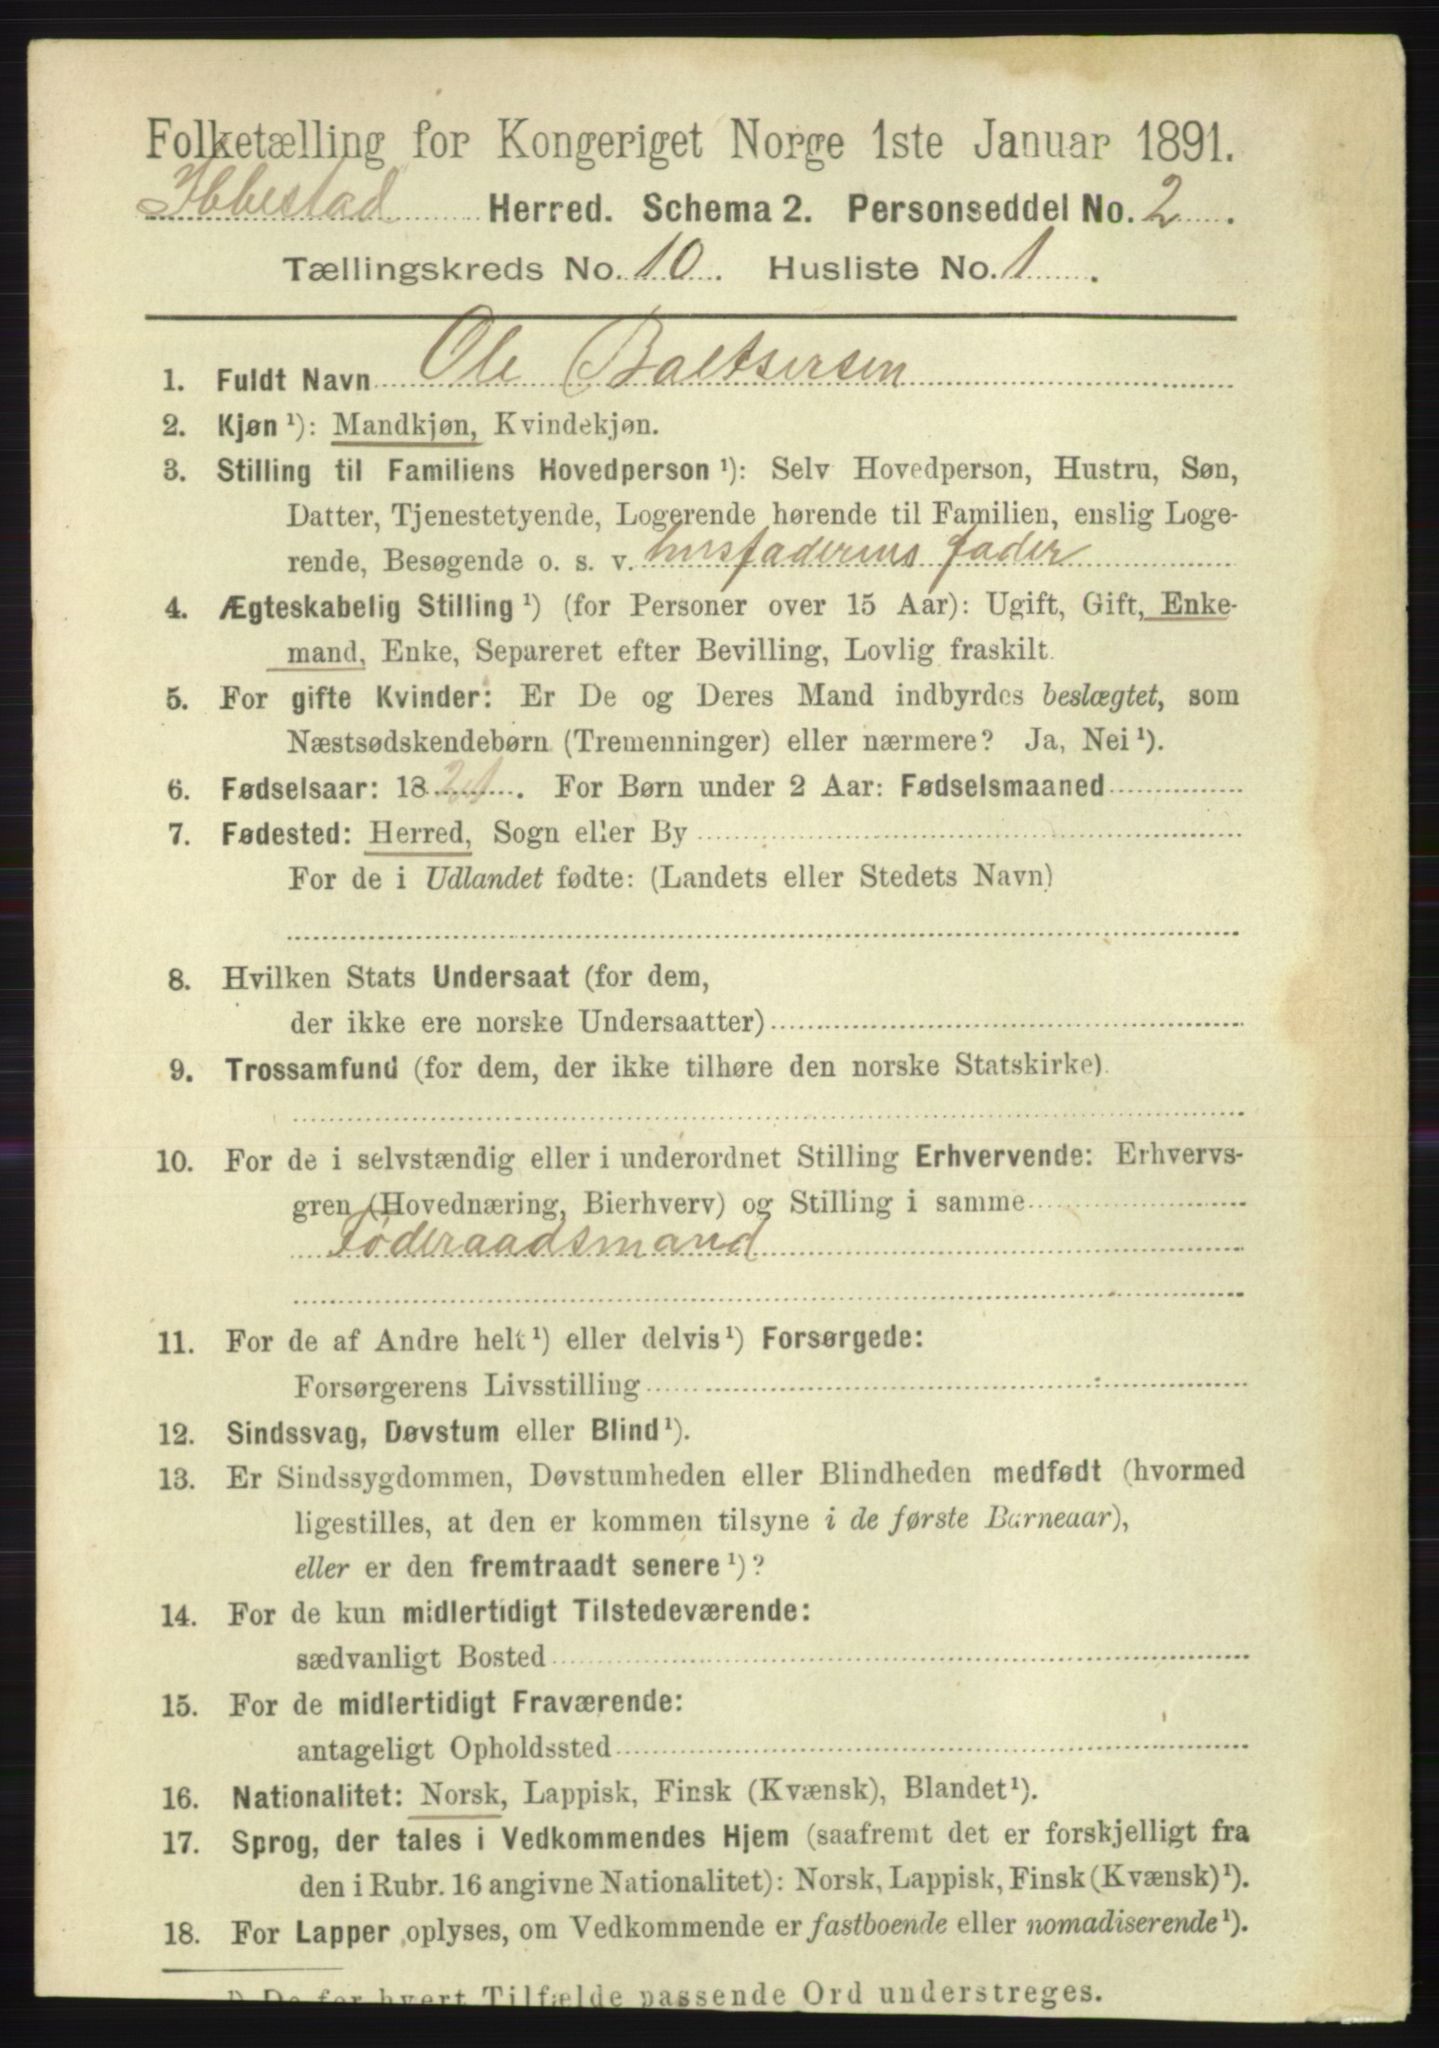 Folketælling for Kongeriget Norge 1ste Januar 1891.
Ibbestad Herred. Schema 2. Personseddel No. 2.
Tællingskreds No. 10. Husliste No. 1.
1. Fuldt Navn Ole Baltsersen
2. Kjøn¹): Mandkjøn, Kvindekjøn.
3. Stilling til Familiens Hovedperson¹): Selv Hovedperson, Hustru, Søn,
Datter, Tjenestetyende, Logerende hørende til Familien, enslig Loge-
rende, Besøgende o. s. v. husfaderens fader
4. Ægteskabelig Stilling¹) (for Personer over 15 Aar): Ugift, Gift, Enke-
mand, Enke, Separeret efter Bevilling, Lovlig fraskilt.
5. For gifte Kvinder: Er De og Deres Mand indbyrdes beslægtet, som
Næstsødskendebørn (Tremenninger) eller nærmere? Ja, Nei¹).
6. Fødselsaar: 1821. For Børn under 2 Aar: Fødselsmaaned
7. Fødested: Herred, Sogn eller By
For de i Udlandet fødte: (Landets eller Stedets Navn)
8. Hvilken Stats Undersaat (for dem,
der ikke ere norske Undersaatter)
9. Trossamfund (for dem, der ikke tilhøre den norske Statskirke).
10. For de i selvstændig eller i underordnet Stilling Erhvervende: Erhvervs-
gren (Hovednæring, Bierhverv) og Stilling i samme
Føderaadsmand
11. For de af Andre helt¹) eller delvis¹) Forsørgede:
Forsørgerens Livsstilling
12. Sindssvag, Døvstum eller Blind¹).
13. Er Sindssygdommen, Døvstumheden eller Blindheden medfødt (hvormed
ligestilles, at den er kommen tilsyne i de første Barneaar),
eller er den fremtraadt senere¹)?
14. For de kun midlertidigt Tilstedeværende:
sædvanligt Bosted
15. For de midlertidigt Fraværende:
antageligt Opholdssted
16. Nationalitet: Norsk, Lappisk, Finsk (Kvænsk), Blandet¹).
17. Sprog, der tales i Vedkommendes Hjem (saafremt det er forskjelligt fra
den i Rubr. 16 angivne Nationalitet): Norsk, Lappisk, Finsk (Kvænsk)¹).
18. For Lapper oplyses, om Vedkommende er fastboende eller nomadiserende¹).
¹) De for hvert Tilfælde passende Ord understreges.